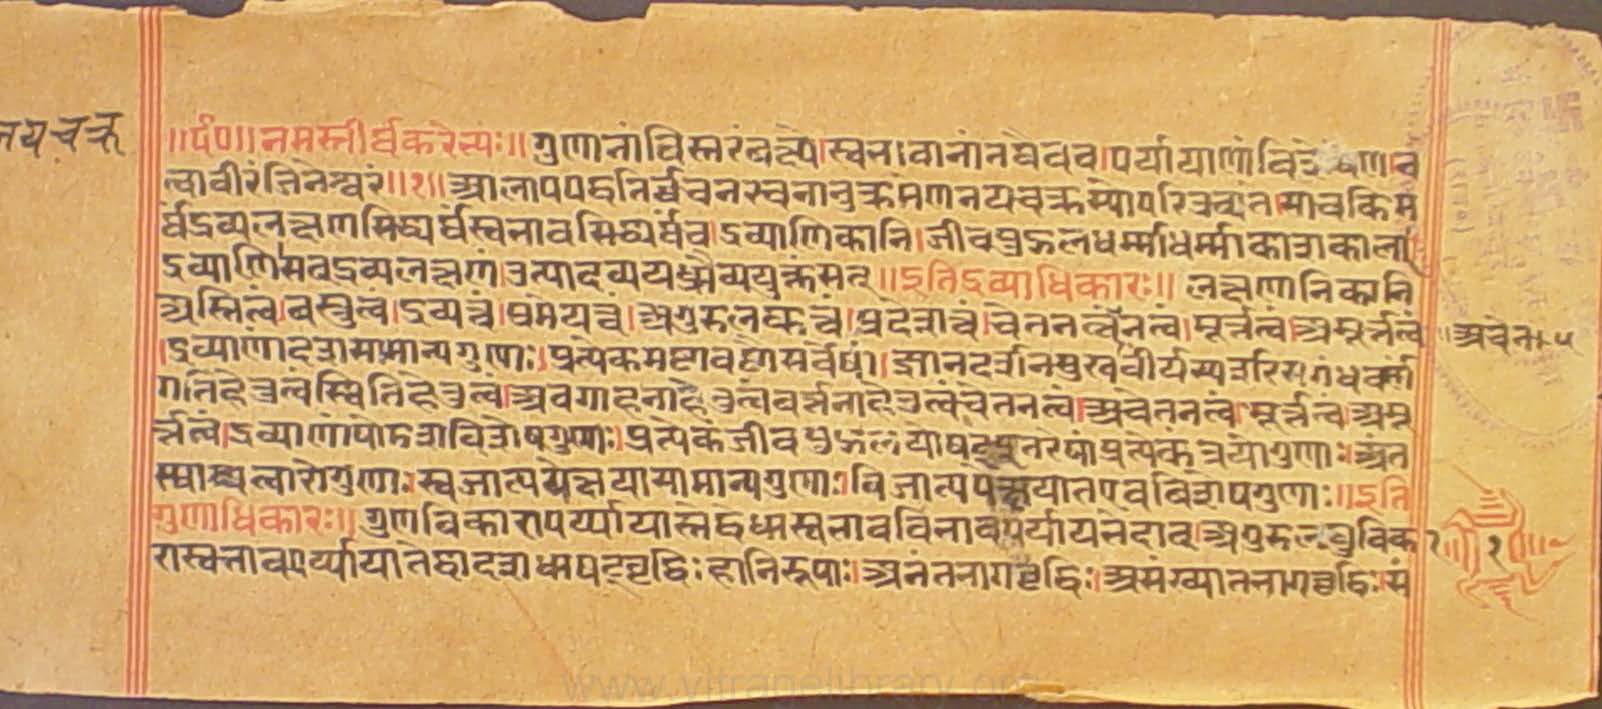 नयचक्र
॥र्द०॥नमस्तीर्थकरेत्यः॥गुणानांविस्तरंवक्ष्ये।स्वभावानांतथैवच।पर्यायाणांविशेषेणन
त्वावीरंजिनेश्वरं॥१॥आलापपद्धतिर्वचनरचनानुक्रमेणनयचक्रस्योपरिउच्यते।साचकिम
र्थंद्रव्यलक्षणसिद्ध्यर्थंस्वभावसिद्ध्यर्थंच।द्रव्याणिकानि।जीवपुद्गलधर्म्माधर्म्माकाशकाला
द्रव्याणि।सतद्रव्यलक्षणं।उत्पादव्ययध्रौव्ययुक्तंसत्॥इतिद्रव्याधिकारः॥लक्षणानिकानि
अस्तित्वं।वस्तुत्वं।द्रव्यत्वं।प्रमेयत्वं।अगुरुलघुत्वं।प्रदेशत्वं।चेतनत्वंनत्वं।मूर्त्तत्वं।अमूर्त्तत्वं
॥अचेत॥५
।द्रव्याणांदशसामान्यगुणाः।प्रत्येकमष्टावष्टौसर्वेषां।ज्ञानदर्शनसुखवीर्यस्पर्शरसगंधवर्ण
गतिहेतुत्वंस्थितिहेतुत्व।अवगाहनाहेतुत्वंवर्त्तनाहेतुत्वंचेतनत्वं।अचेतनत्वं।मूर्त्तत्वं।अमू
र्त्तत्वं।द्रव्याणांषोडशविशेषगुणाः।प्रत्येकंजीवपुद्गलयोषट्इतरेषांप्रत्येकंत्रयोगुणाः।अंत
स्थाश्चत्वारोगुणाः।स्वजात्यपेक्षयासामान्यगुणाः।विजात्यपेक्षयातएवविशेषगुणाः॥इति
गुणाधिकारः॥गुणविकारापर्य्यायास्तेद्वेधास्वभावविभावपर्यायभेदात्।अगुरुलघुविक
२
रास्वभावपर्य्यायातेद्वादशधाषट्वृद्धिःहानिरूपाः।अनंतभागवृद्धिः।असंख्यातभागवृद्धिः।सं
www.vitragelibrary.org